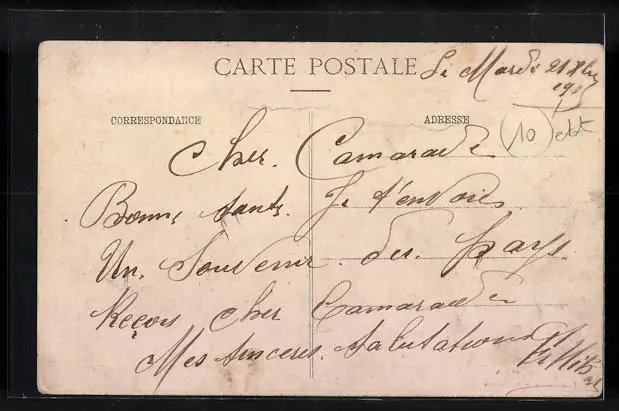 CARTE POSTALE
Le Mardi 21 Xbre
CORRESPONDANCE
ADRESSE
(10) ebt
Cher. Camarade
Bonne santé. Je t'envois
Un. Souvenir. du. pays.
Reçois cher Camarade
Mes sinceres. salutations